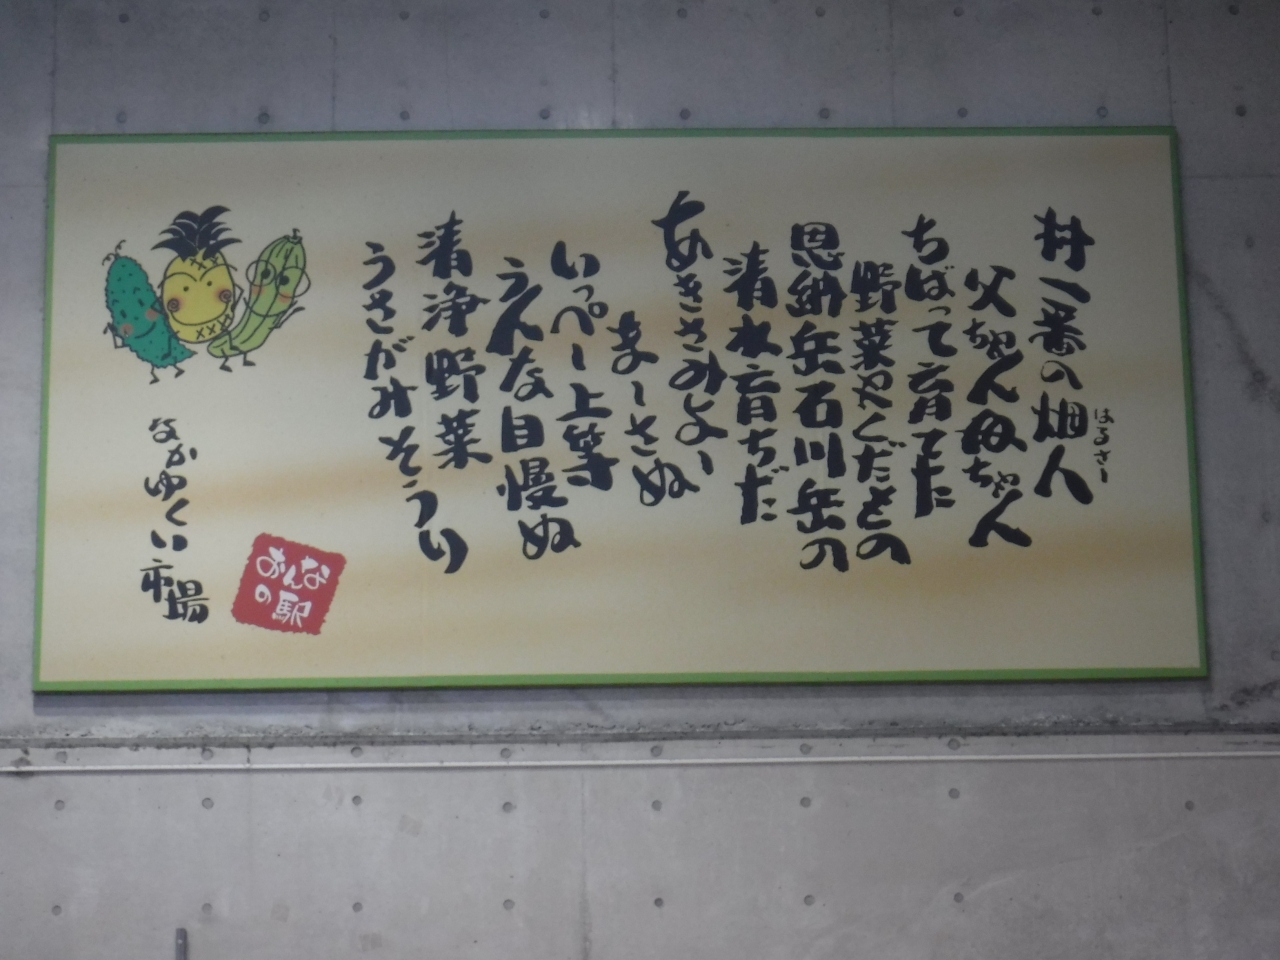 村一番の畑人
はるさー
父ちゃん母ちゃん
ちばって育てた
野菜やくだもの
恩納岳石川岳の
清水育ちだ
あきさみよー
まーさぬ
いっぺー上等
うんな自慢ぬ
清浄野菜
うさがみそうり
おんな
の駅
なかゆくい市場